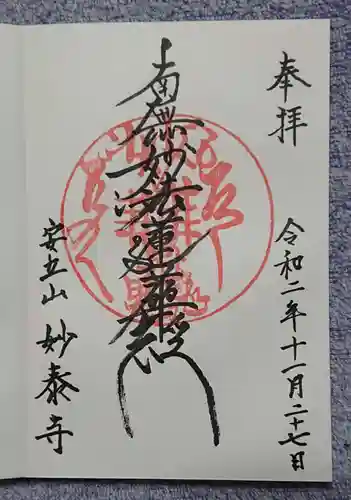 奉拝
令和二年十一月二十七日
南無妙法蓮華経
安立山 妙泰寺